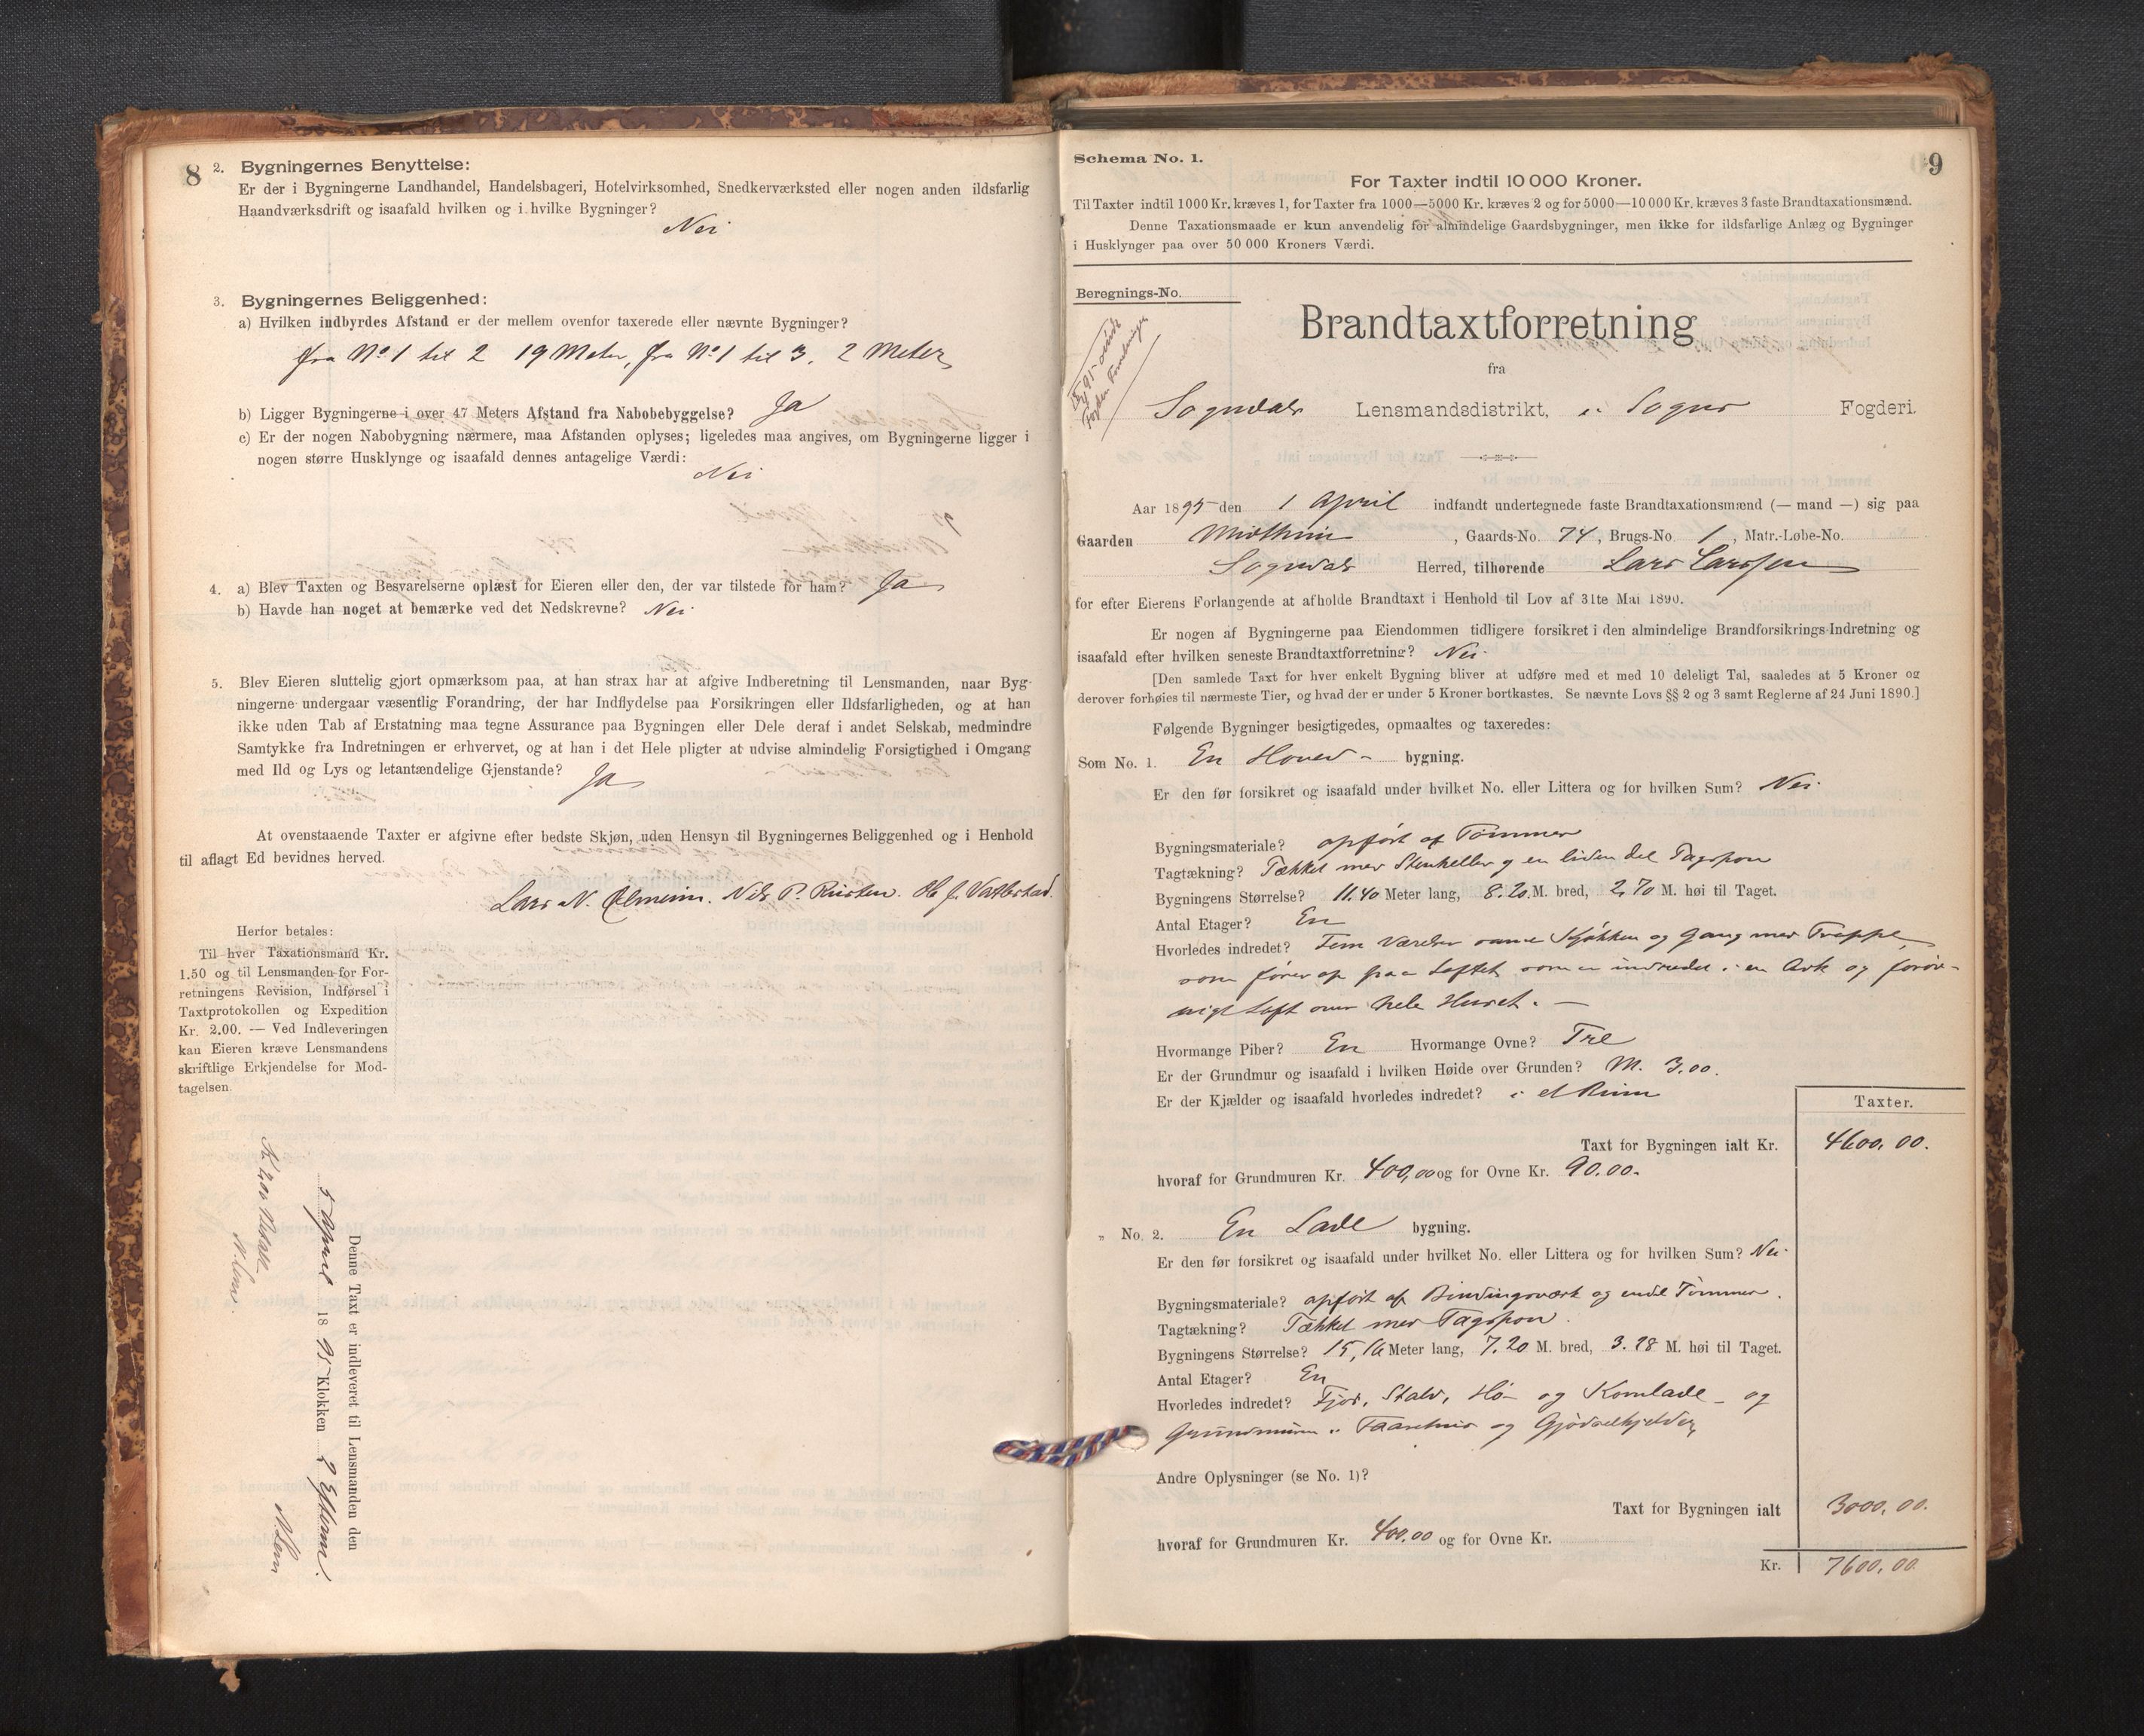 8
2. Bygningernes Benyttelse:
Er der i Bygningerne Landhandel, Handelsbageri, Hotelvirksomhed, Snedkerværksted eller nogen anden ildsfarlig
Haandværksdrift og isaafald hvilken og i hvilke Bygninger?
Nei
3. Bygningernes Beliggenhed:
a) Hvilken indbyrdes Afstand er der mellem ovenfor taxerede eller nævnte Bygninger?
fra No 1 til 2 19 Meter, fra No 1 til 3, 2 Meter
b) Ligger Bygningerne i over 47 Meters Afstand fra Nabobebyggelse? Ja
c) Er der nogen Nabobygning nærmere, maa Afstanden oplyses; ligeledes maa angives, om Bygningerne ligger i
nogen større Husklynge og isaafald dennes antagelige Værdi:
Nei
4. a) Blev Taxten og Besvarelserne oplæst for Eieren eller den, der var tilstede for ham? Ja
b) Havde han noget at bemærke ved det Nedskrevne? Nei
5. Blev Eieren sluttelig gjort opmærksom paa, at han strax har at afgive Indberetning til Lensmanden, naar Byg-
ningerne undergaar væsentlig Forandring, der har Indflydelse paa Forsikringen eller Ildsfarligheden, og at han
ikke uden Tab af Erstatning maa tegne Assurance paa Bygningen eller Dele deraf i andet Selskab, medmindre
Samtykke fra Indretningen er erhvervet, og at han i det Hele pligter at udvise almindelig Forsigtighed i Omgang
med Ild og Lys og letantændelige Gjenstande? Ja
At ovenstaaende Taxter er afgivne efter bedste Skjøn, uden Hensyn til Bygningernes Beliggenhed og i Henhold
til aflagt Ed bevidnes herved.
Lars N. Nils P. H. J.
Herfor betales:
Til hver Taxationsmand Kr.
1.50 og til Lensmanden for For-
retningens Revision, Indførsel i
Taxtprotokollen og Expedition
Kr. 2.00. — Ved Indleveringen
kan Eieren kræve Lensmandens
skriftlige Erkjendelse for Mod-
tagelsen.
Denne Taxt er indleveret til Lensmanden den
5 April 1895 Klokken 2 Efterm.
Kr 2.00 Betalt
Schema No. 1.
9
For Taxter indtil 10 000 Kroner.
Til Taxter indtil 1000 Kr. kræves 1, for Taxter fra 1000—5000 Kr. kræves 2 og for 5000—10 000 Kr. kræves 3 faste Brandtaxationsmænd.
Denne Taxationsmaade er kun anvendelig for almindelige Gaardsbygninger, men ikke for ildsfarlige Anlæg og Bygninger
i Husklynger paa over 50 000 Kroners Værdi.
Beregnings-No.
Brandtaxtforretning
fra
Sogndals Lensmandsdistrikt, i Sogns Fogderi.
Aar 1895 den 1 April indfandt undertegnede faste Brandtaxationsmænd (— mand —) sig paa
Gaarden , Gaards-No. 74, Brugs-No 1, Matr.-Løbe-No.
Sogndals Herred, tilhørende Lars Larssen
for efter Eierens Forlangende at afholde Brandtaxt i Henhold til Lov af 31te Mai 1890.
Er nogen af Bygningerne paa Eiendommen tidligere forsikret i den almindelige Brandforsikrings-Indretning og
isaafald efter hvilken seneste Brandtaxtforretning? Nei.
[Den samlede Taxt for hver enkelt Bygning bliver at udføre med et med 10 deleligt Tal, saaledes at 5 Kroner og
derover forhøies til nærmeste Tier, og hvad der er under 5 Kroner bortkastes. Se nævnte Lovs §§ 2 og 3 samt Reglerne af 24 Juni 1890.]
Følgende Bygninger besigtigedes, opmaaltes og taxeredes:
Som No. 1. En Hoved- bygning.
Er den før forsikret og isaafald under hvilket No. eller Littera og for hvilken Sum? Nei.
Bygningsmateriale? opført af Tømmer
Tagtækning? Tækket med Stenheller og en liden del Tagspon
Bygningens Størrelse? 11.40 Meter lang, 8.20. M. bred, 2.70 M. høi til Taget.
Antal Etager? En
Hvorledes indredet? Fem Værelser samt Kjøkken og Gang med Trappe,
som fører op paa Loftet som er indredet i en Ark og forøv-
rigt Loft over hele Huset. —
Hvormange Piber? En Hvormange Ovne? Tre
Er der Grundmur og isaafald i hvilken Høide over Grunden? M. 3.00.
Er der Kjælder og isaafald hvorledes indredet? i et Rum
Taxter.
Taxt for Bygningen ialt Kr. 4600,00.
hvoraf for Grundmuren Kr. 400,00 og for Ovne Kr. 90.00.
„ No. 2. En Lade bygning.
Er den før forsikret og isaafald under hvilket No. eller Littera og for hvilken Sum? Nei.
Bygningsmateriale? opført af Bindingsværk og endel Tømmer.
Tagtækning? Tækket med Tagspon.
Bygningens Størrelse? 15,16 Meter lang, 7.20 M. bred, 3.28 M. høi til Taget.
Antal Etager? En
Hvorledes indredet? Fjøs, Stald, Hø- og Kornlade - og
Grundmuren i og Gjødselkjelder,
Andre Oplysninger (se No. 1)?
Taxt for Bygningen ialt 3000,00.
hvoraf for Grundmuren Kr. 400,00 og for Ovne Kr.
Kr. 7600,00